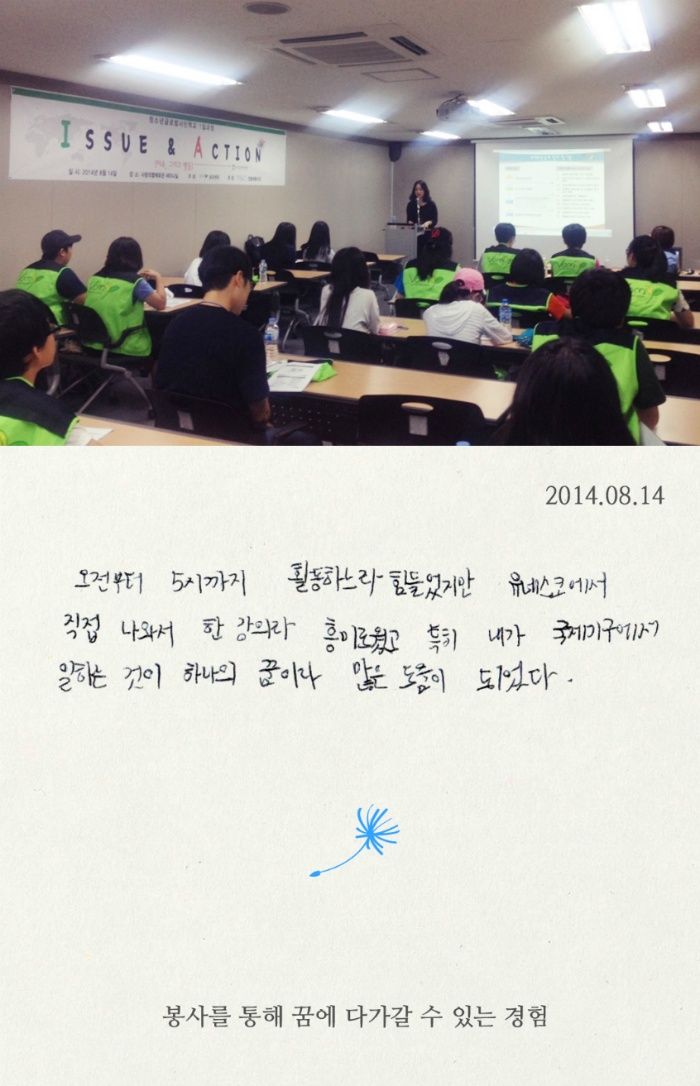 ISSUE & ACTION
2014.08.14
오전부터 5시까지 활동하느라 힘들었지만 유네스코에서
직접 나와서 한 강의라 흥미로웠고 특히 내가 국제기구에서
일하는 것이 하나의 꿈이라 많은 도움이 되었다.
봉사를 통해 꿈에 다가갈 수 있는 경험